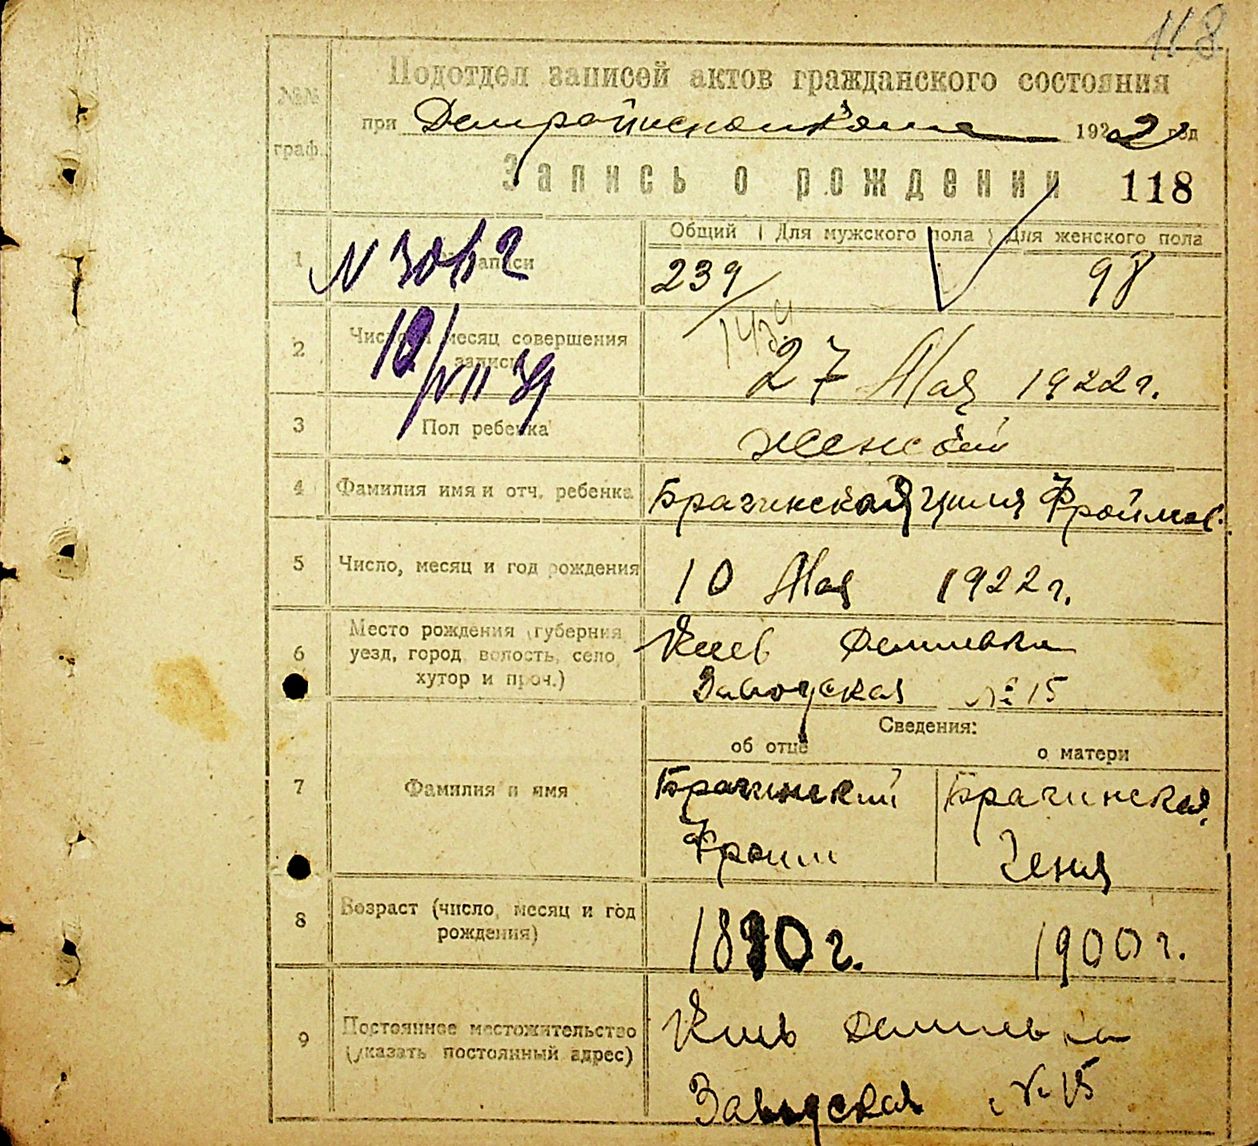 118
Подотдел записей актов гражданского состояния
№№ граф.
при Демрайисполкоме 1922 год
Запись о рождении 118
Общий Для мужского пола Для женского пола
1 № записи 239 98
N 3062
1434
2 Число и месяц совершения записи 27 Мая 1922 г.
10/VII 39
3 Пол ребенка женский
4 Фамилия имя и отч. ребенка Брагинская Циля Фроймов.
5 Число, месяц и год рождения 10 Мая 1922 г.
6 Место рождения (губерния, уезд, город, волость, село, хутор и проч.) Киев Демиевка
Заводская № 15
Сведения:
об отце о матери
7 Фамилия и имя Брагинский Брагинская
Фроим Геня
8 Возраст (число, месяц и год рождения) 1890 г. 1900 г.
9 Постоянное местожительство (указать постоянный адрес) Киев Демиевка
Заводская № 15